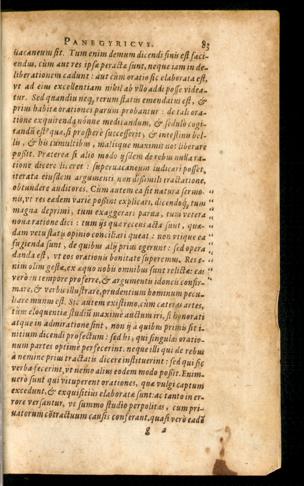 PANEGYRICVS. 83
uacaneum sit. Tum enim demum dicendi finis est faci-
endus, cùm aut res ipsæ peractæ sunt, neque iam in de-
liberationem cadunt: aut cùm oratio sic elaborata est,
vt ad eius excellentiam nihil ab vllo addi posse videa-
tur. Sed quandiu neq, rerum status emendatus est, &
prius habitæ orationes parum probantur: de tali ora-
tione exquirenda nónne meditandum, & sedulò cogi-
tandū est? quæ, si prosperè successerit, & intestino bel-
lo, & his tumultibus, malisque maximis nos liberare
possit. Præterea si alio modo ijsdem de rebus nulla ra-
tione dicere liceret: superuacaneum iudicari posset,
iterata eiusdem argumenti, non dissimili tractatione,
obtundere auditores. Cùm autem ea sit natura sermo-
nis, vt res eædem variè possint explicari, dicendoq́, tum
magna deprimi, tum exaggerari parua, tum vetera
noua ratione dici: tum ijs quæ recens acta sunt, quan-
dam vetustatis opinio conciliari queat: non vtique ea
fugienda sunt, de quibus alij prius egerunt: sed opera
danda est, vt eos orationis bonitate superemus. Res e-
nim olim gestæ, ex æquo nobis omnibus sunt relictæ: eas
verò in tempore proferre, & argumentis idoneis confir-
mare, & verbis illustrare, prudentium hominum pecu-
liare munus est. Sic autem existimo, cùm cæteras artes,
tùm eloquentiæ studiū maximè auctum iri, si honorati
atque in admiratione sint, non ij à quibus primis sit i-
nitium dicendi profectum: sed hi, qui singulas oratio-
num partes optimè perfecerint. neque illi qui de rebus
à nemine prius tractatis dicere instituerint: sed qui sic
verba fecerint, vt nemo alius eodem modo possit. Enim-
uerò sunt qui vituperent orationes, quæ vulgi captum
excedunt, & exquisitius elaboratæ sunt: ac tanto in er-
rore versantur, vt summo studio perpolitas, cum pri-
uatorum cōtractuum causis conferant, quasi verò eādē
g 2